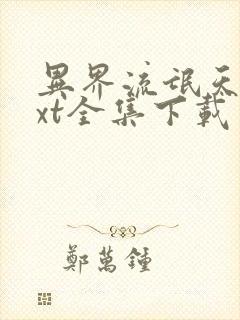 異界流氓天
xt全集下載
鄭萬鍾